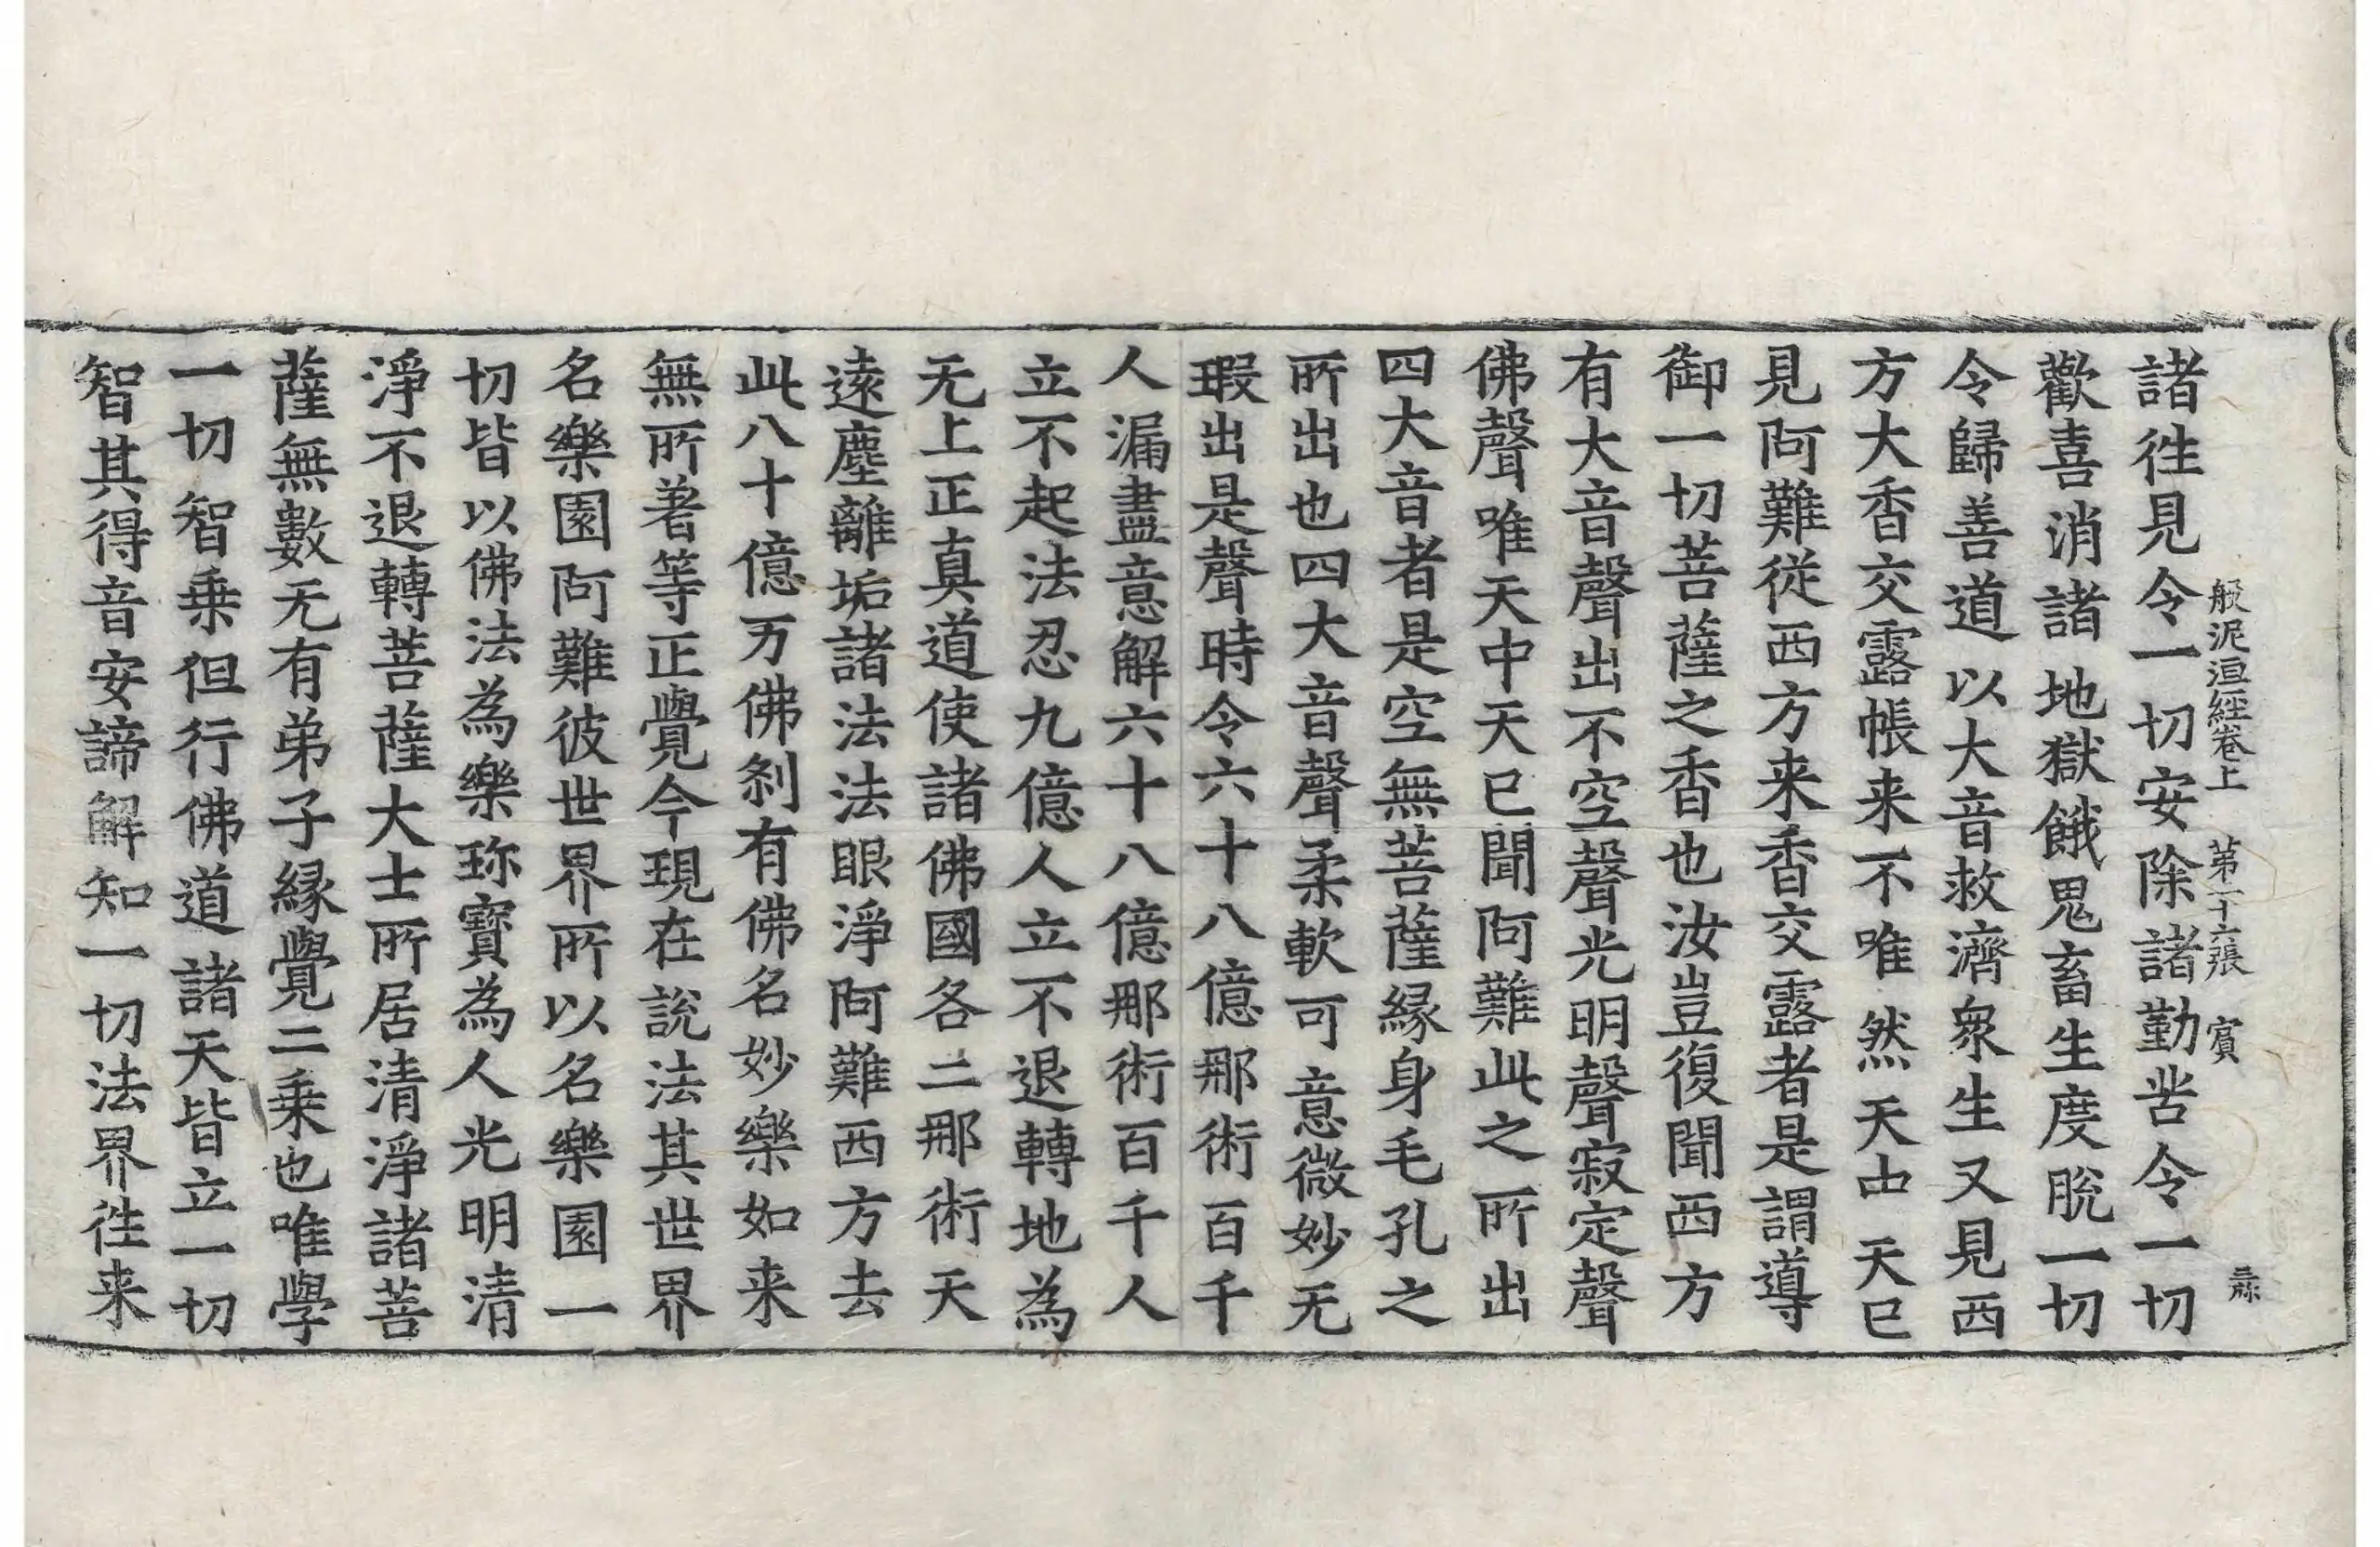 般泥洹經卷上 第二十六張 賓
諸徃見令一切安除諸勤苦令一切
歡喜消諸地獄餓鬼畜生度脫一切
令歸善道以大音救濟衆生又見西
方大香交露帳来不唯然天中天巳
見阿難從西方来香交露者是謂導
御一切菩薩之香也汝豈復聞西方
有大音聲出不空聲光明聲寂定聲
佛聲唯天中天巳聞阿難此之所出
四大音者是空無菩薩縁身毛孔之
所出也四大音聲柔軟可意微妙无
瑕出是聲時令六十八億那術百千
人漏盡意解六十八億那術百千人
立不起法忍九億人立不退轉地為
无上正真道使諸佛國各二那術天
逺塵離垢諸法法眼淨阿難西方去
此八十億万佛刹有佛名妙樂如来
無所著等正覺今現在說法其世界
名樂園阿難彼世界所以名樂園一
切皆以佛法為樂珎寶為人光明清
淨不退轉菩薩大士所居清淨諸菩
薩無數无有弟子縁覺二乗也唯學
一切智乗但行佛道諸天皆立一切
智其得音安諦解知一切法界徃来